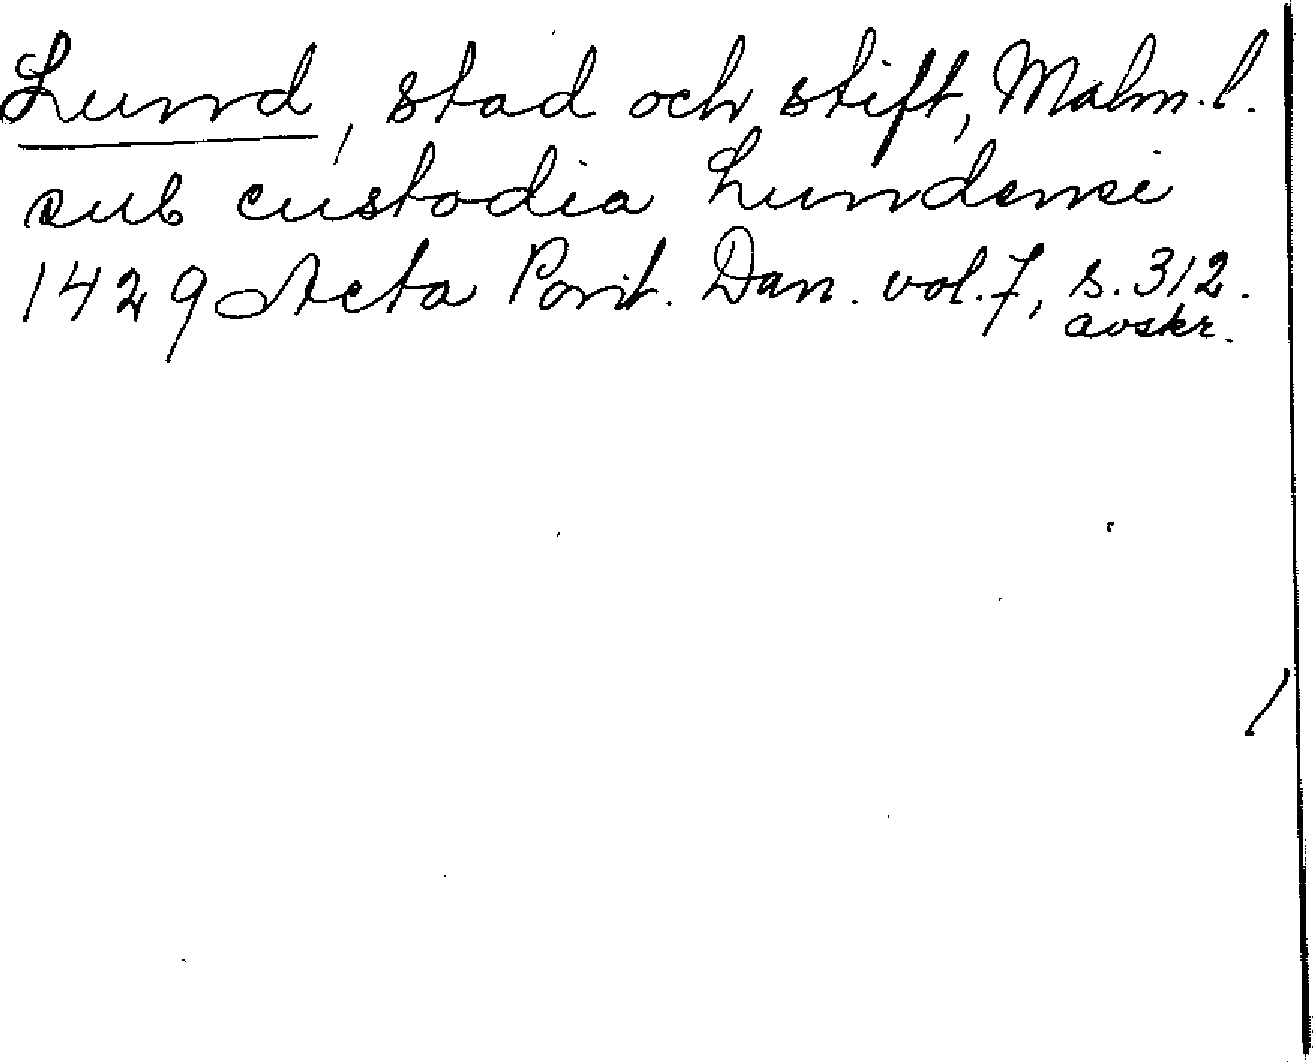 Lund, stad och stift, Malm. l.
sub custodia Lundensi
1429 Acta Pont. Dan. vol. 7, s. 312.
avskr.